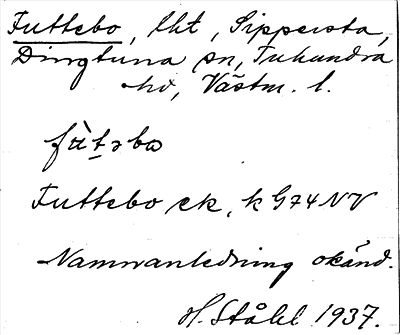 Futtebo, lht, Sippersta,
Dingtuna sn, Tuhundra
hd, Västm. l.
fùt̠əbo
Futtebo ek, k G74NV
Namnanledning okänd.
H. Ståhl 1937.